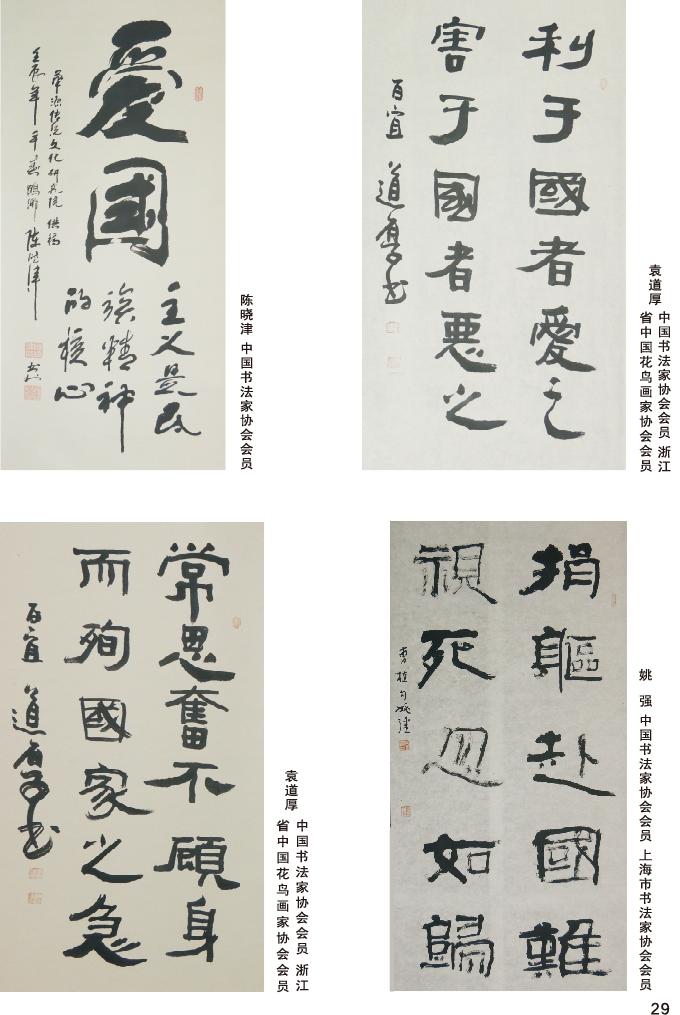 愛國
主义是民
族精神
的核心
華源传统文化研究院供稿
壬辰年
陈晓津
陈晓津 中国书法家协会会员
利于國者愛之
害于國者悪之
百宜 道厚书
袁道厚 中国书法家协会会员 浙江
省中国花鸟画家协会会员
常思奮不顧身
而殉國家之急
百宜 道厚书
袁道厚 中国书法家协会会员 浙江
省中国花鸟画家协会会员
捐軀赴國難
視死忽如歸
曹植句姚强
姚 强 中国书法家协会会员 上海市书法家协会会员
29